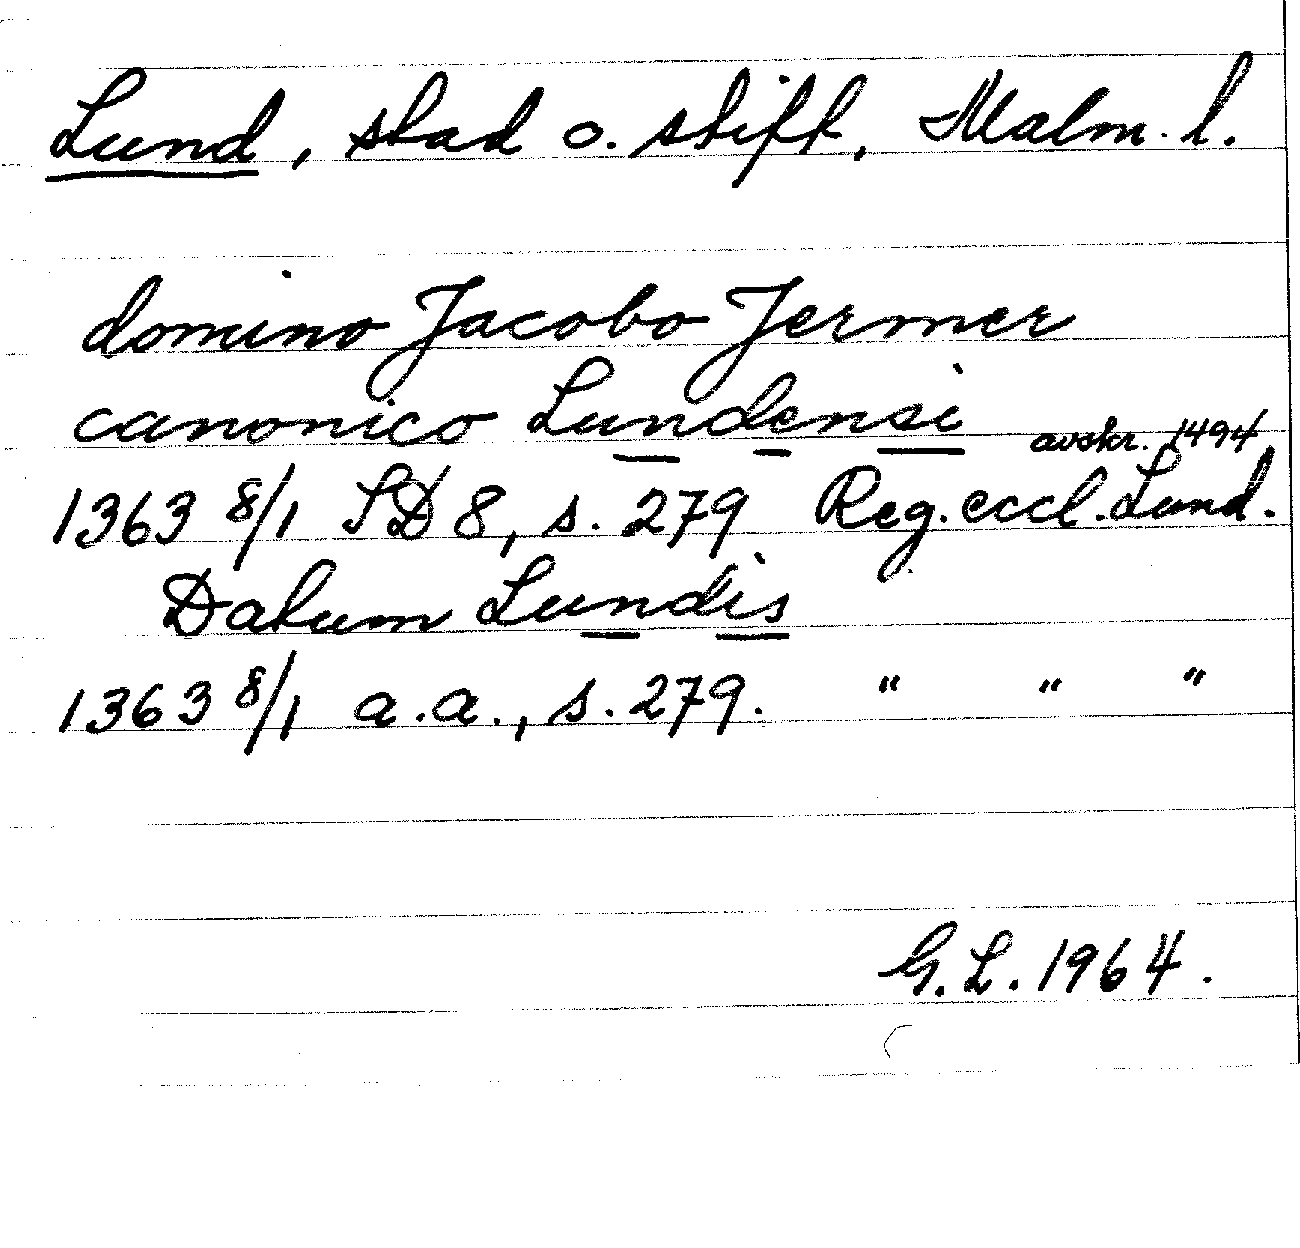 Lund, stad o. stift, Malm. l.
domino Jacobo Jermer
canonico Lundensi avskr. 1494
1363 8/1 SD 8, s. 279 Reg. eccl. Lund.
Datum Lundis
1363 8/1 a.a., s. 279. " " "
G.L. 1964.